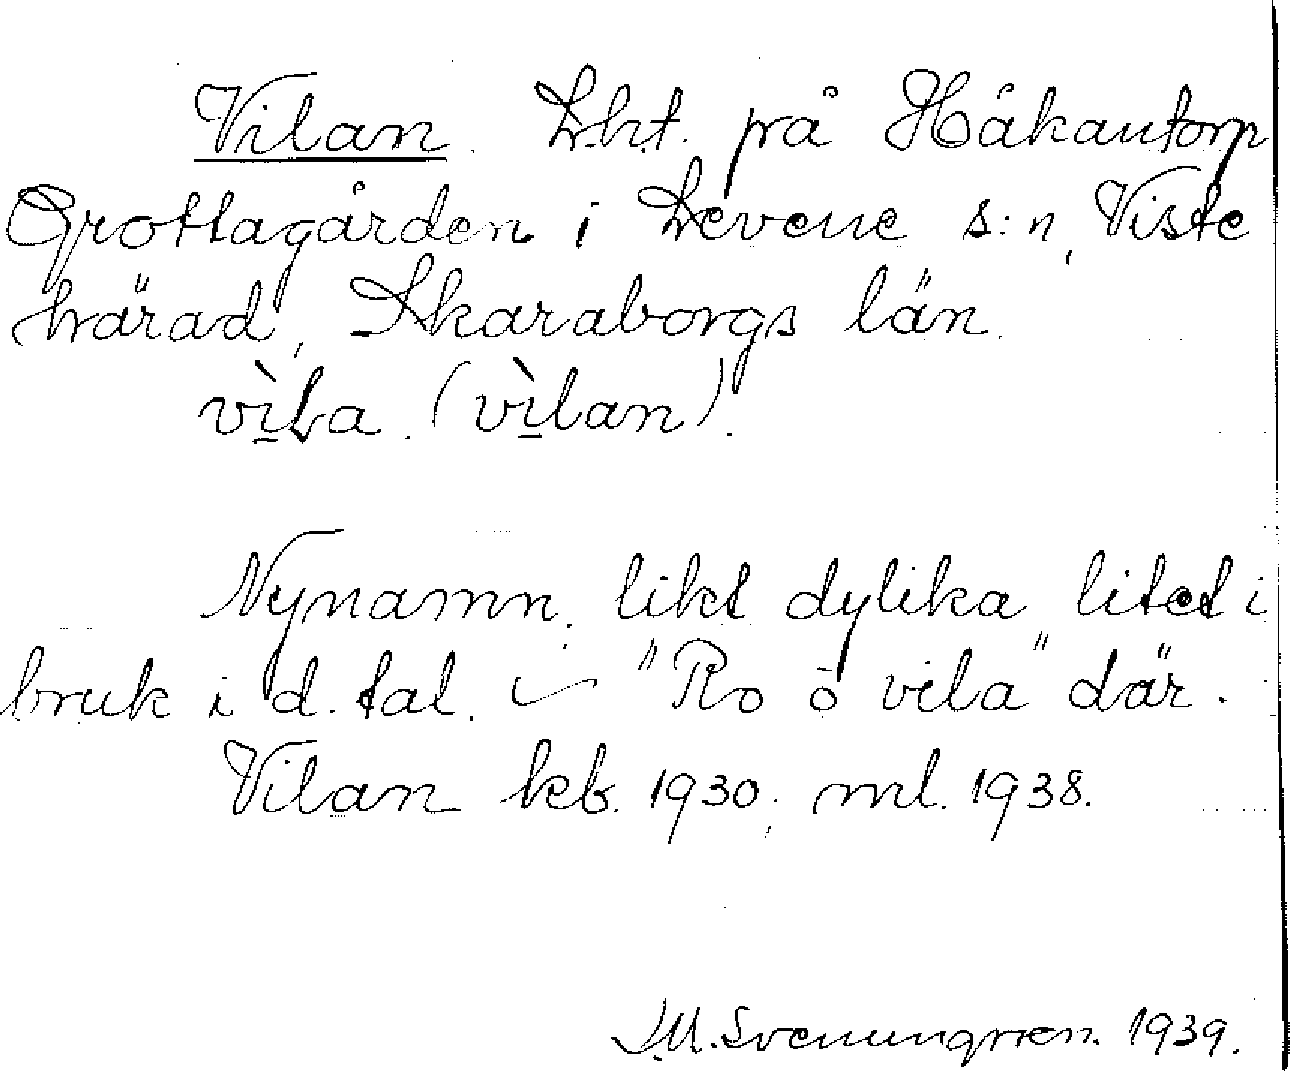 Vilan. Lht. på Håkantorp
Grottagården i Levene s:n, Viste
härad, Skaraborgs län.
vìLa. (vìlan).
Nynamn, likt dylika litet i
bruk i d. tal. – "Ro ö vila" där.
Vilan kb. 1930, ml. 1938.
J.M. Svenungsson. 1939.